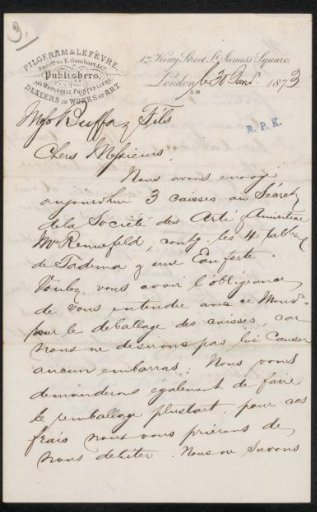 3.
PILGERAM & LEFÈVRE,
Publishers,
DEALERS IN WORKS OF ART.
1A King Street St James's Square,
London, le 30 Janv. 1873
S.W.
R.P.K.
Mess Buffa & Fils
Chers Messieurs,
Nous avons envoyé
aujourd'hui 3 caisses au Secrét
de la Société des Arti Amicitiae
Mr Rennefeld, conts les 4 tablx
de Tadema & une Eau forte.
Voulez vous avoir l'obligeance
de vous entendre avec ce Monsr
pour le déballage des caisses, car
nous ne desirons pas lui causer
aucun embarras; Nous vous
demanderons également de faire
le remballage plustard, pour ces
frais nous vous prierons de
nous debiter. Nous ne savons